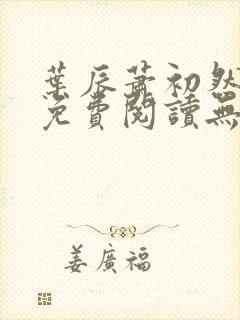 葉辰蕭初然
免費閱讀無
姜廣福